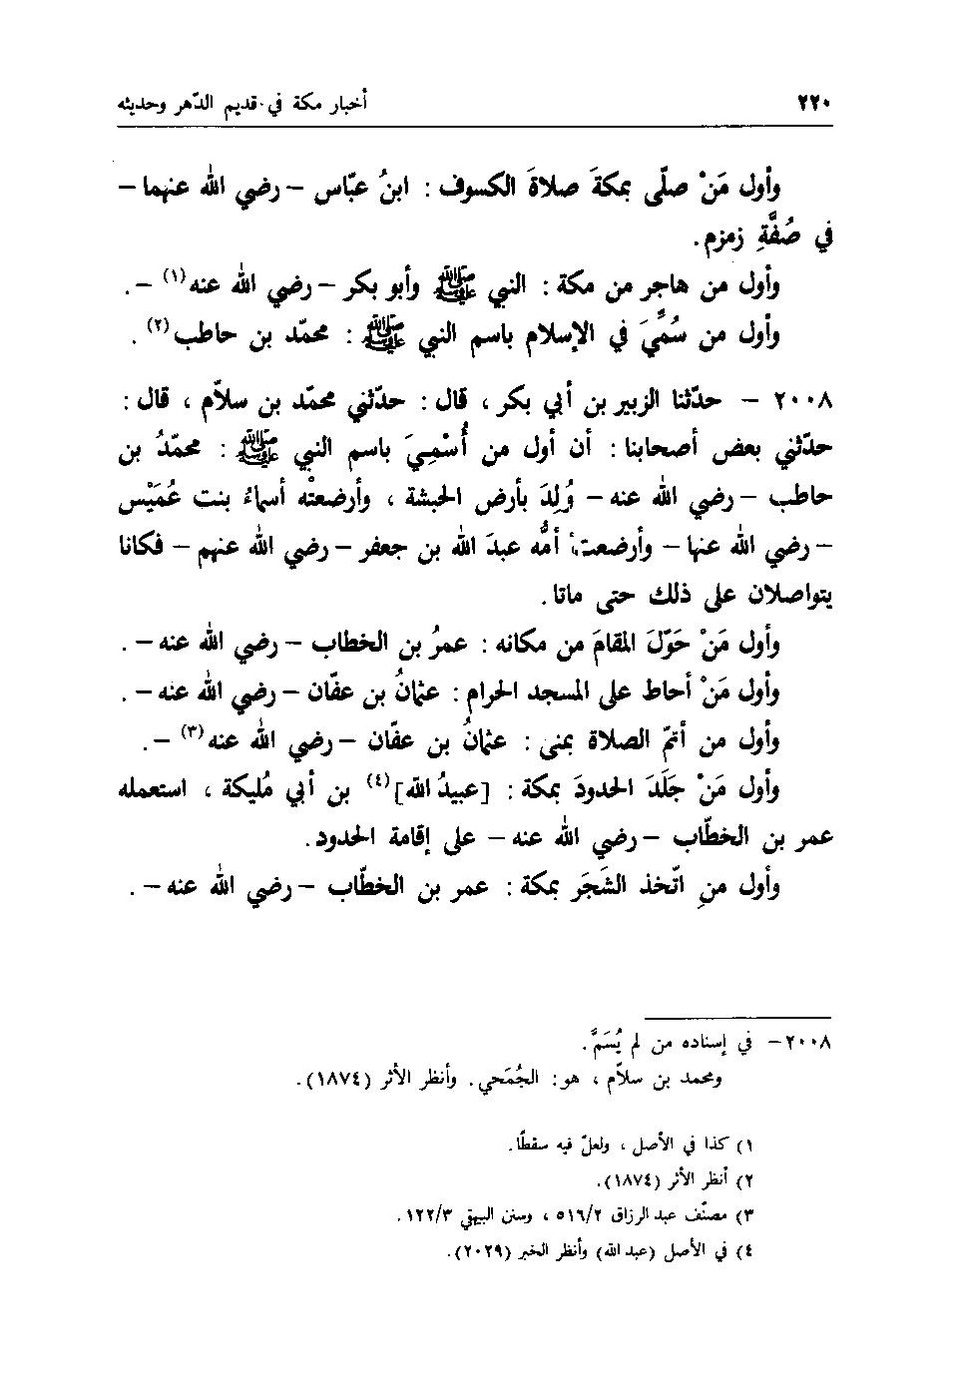 ٢٢٠ أخبار مكة في قديم الدّهر وحديثه
وأول مَنْ صلّى بمكةَ صلاةَ الكسوف : ابنُ عبّاس – رضي الله عنهما –
في صُفَّةِ زمزم .
وأول من هاجر من مكة : النبي ﷺ وأبو بكر – رضي الله عنه (١) – .
وأول من سُمِّيَ في الإسلام باسم النبي ﷺ : محمّد بن حاطب (٢) .
٢٠٠٨ – حدّثنا الزبير بن أبي بكر ، قال : حدّثني محمّد بن سلاّم ، قال :
حدّثني بعض أصحابنا : أن أول من أُسْمِيَ باسم النبي ﷺ : محمّدُ بن
حاطب – رضي الله عنه – وُلِدَ بأرض الحبشة ، وأرضعتْه أسماءُ بنت عُمَيْس
– رضي الله عنها – وأرضعت أمُّه عبدَ الله بن جعفر – رضي الله عنهم – فكانا
يتواصلان على ذلك حتى ماتا .
وأول مَنْ حَوّلَ المقامَ من مكانه : عمرُ بن الخطاب – رضي الله عنه – .
وأول مَنْ أحاط على المسجد الحرام : عثمانُ بن عفّان – رضي الله عنه – .
وأول من أتمّ الصلاة بمنى : عثمانُ بن عفّان – رضي الله عنه (٣) – .
وأول مَنْ جَلَدَ الحدودَ بمكة : [عبيدُ الله] (٤) بن أبي مُليكة ، استعمله
عمر بن الخطّاب – رضي الله عنه – على إقامة الحدود .
وأول منِ اتّخذ الشجَر بمكة : عمر بن الخطّاب – رضي الله عنه – .
٢٠٠٨ – في إسناده من لم يُسَمَّ .
ومحمد بن سلاّم ، هو : الجُمَحي . وأنظر الأثر (١٨٧٤) .
١) كذا في الأصل ، ولعلّ فيه سقطًا .
٢) أنظر الأثر (١٨٧٤) .
٣) مصنّف عبد الرزاق ٥١٦/٢ ، وسنن البيهقي ١٢٢/٣ .
٤) في الأصل (عبد الله) وأنظر الخبر (٢٠٢٩) .